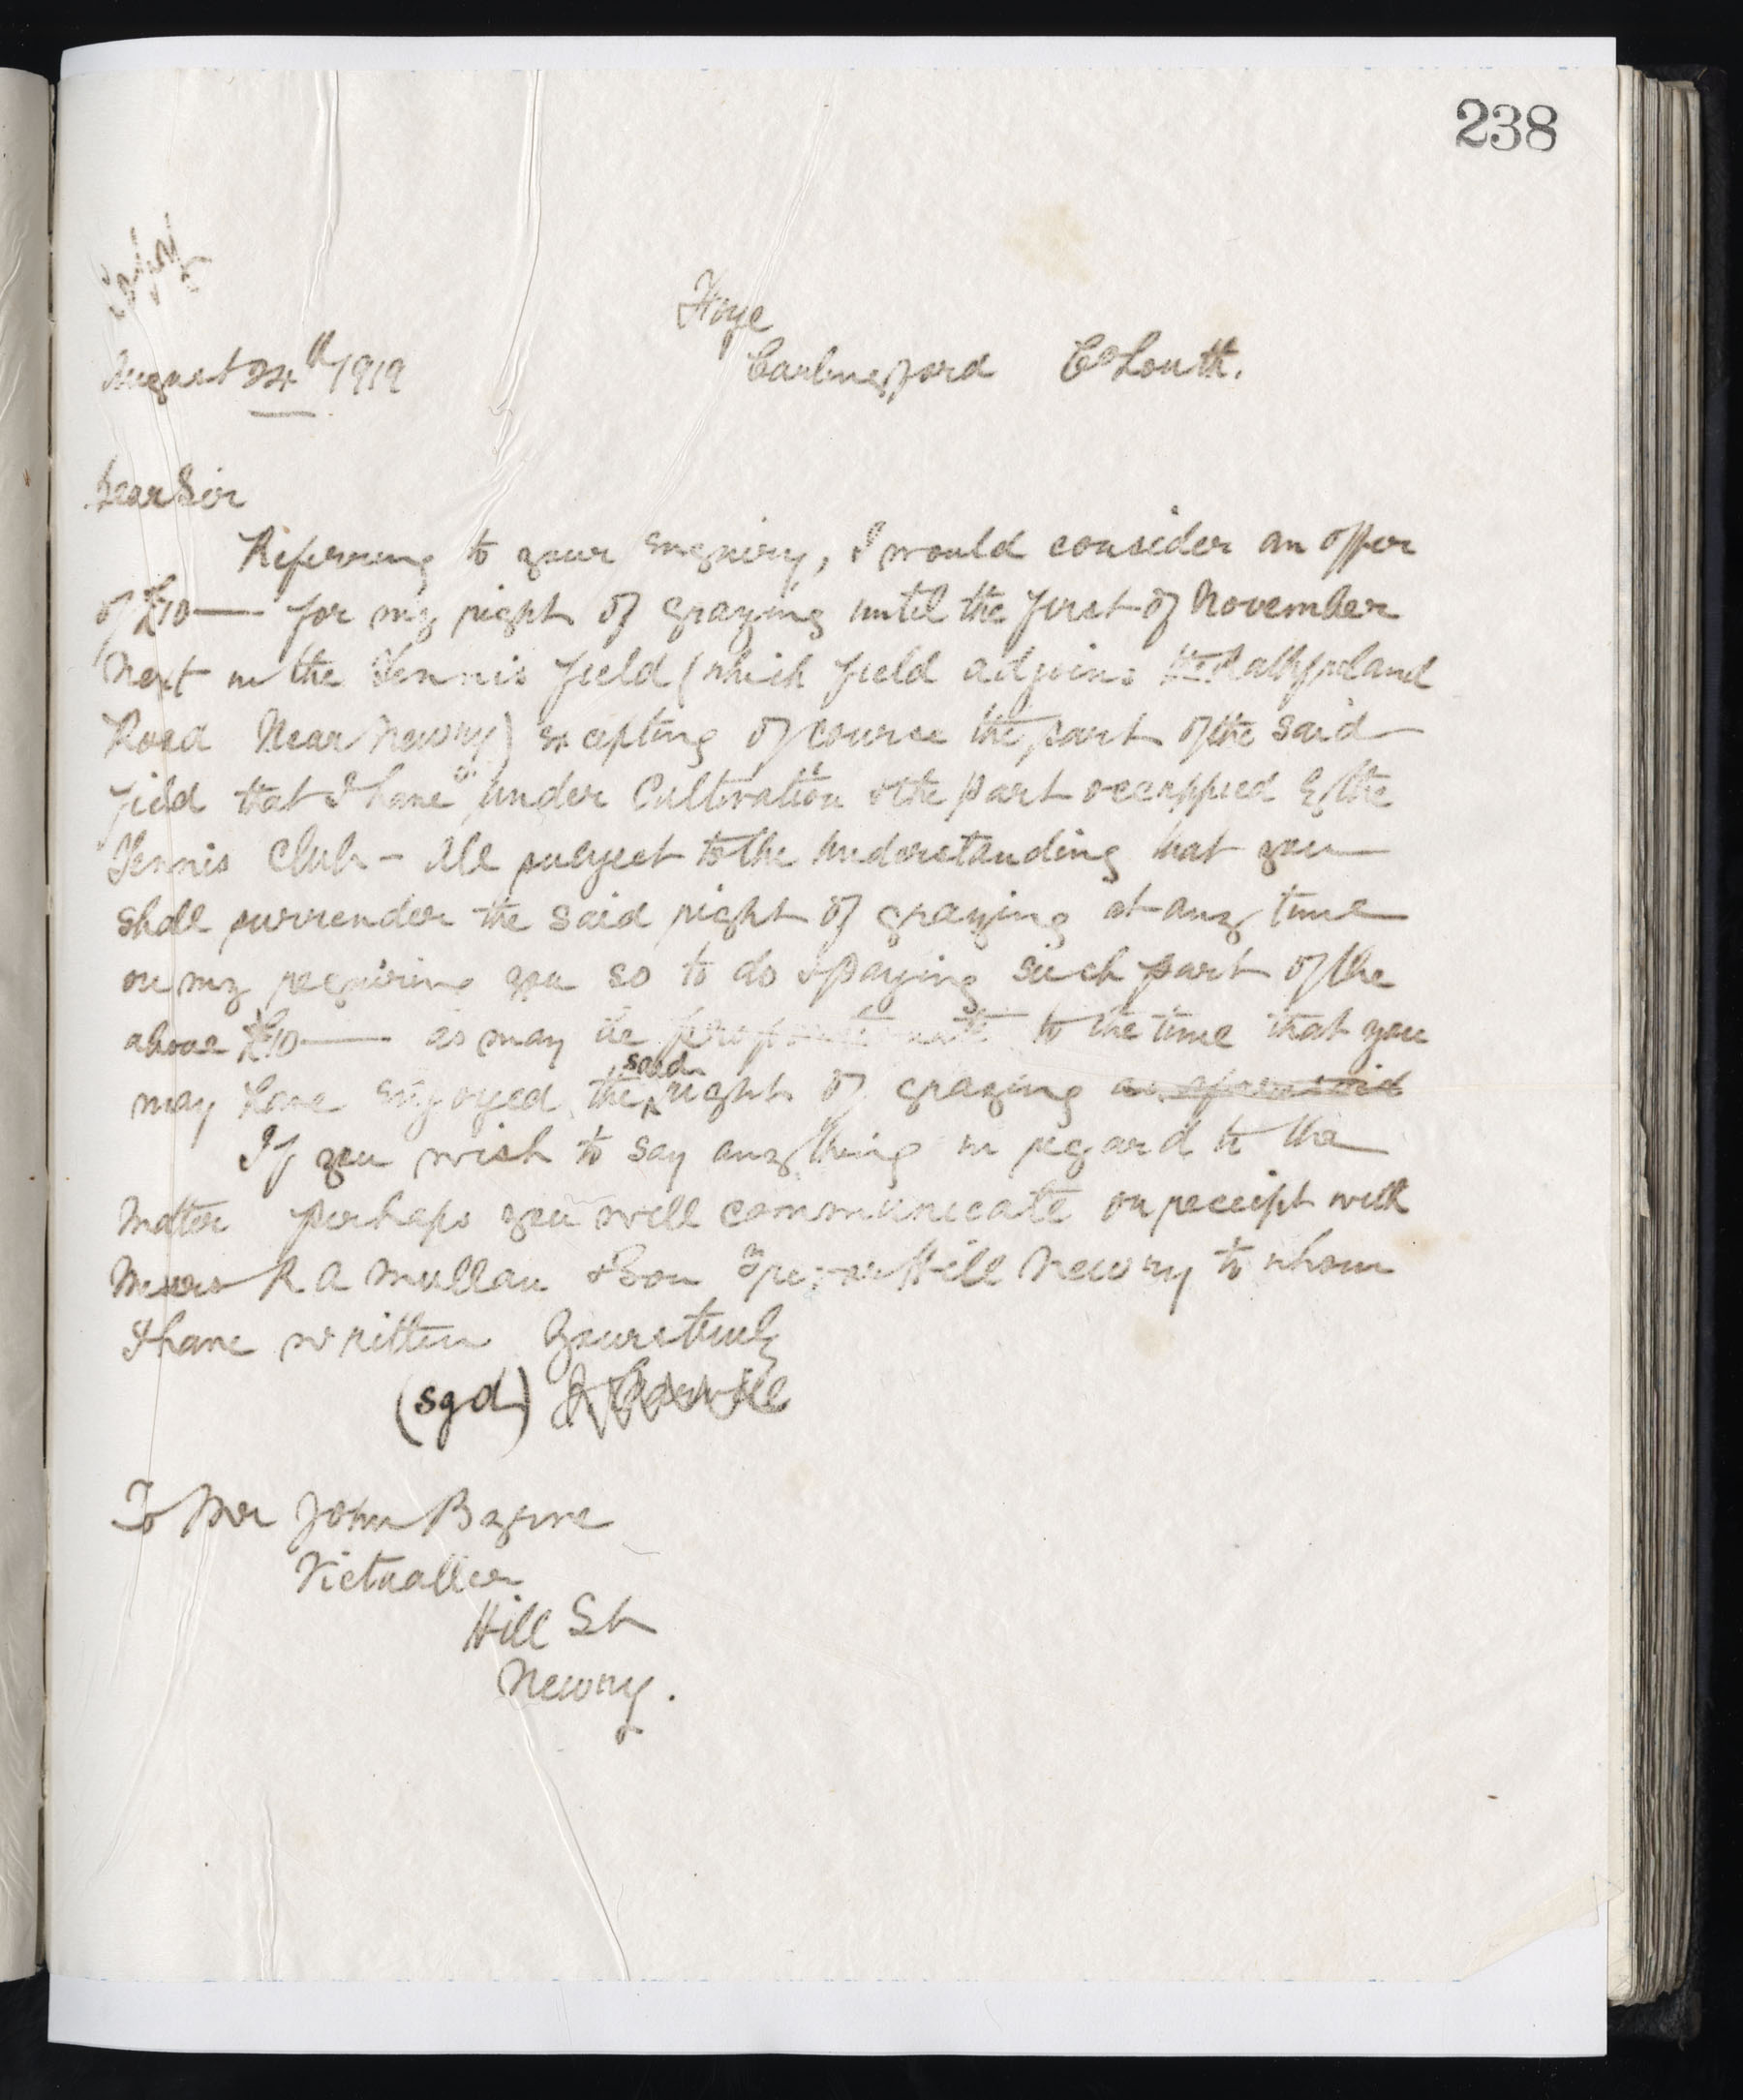 238
Copy
Foye
August 24th/1919 Carlingford Co Louth.
Dear Sir
Referring to your enquiry, I would consider an offer
of £10— for my right of grazing until the first of November
Next in the Tennis field (which field adjoins the Rathfriland
Road Near Newry) excepting of course the part of the said
field that I have under Cultivation & the part occuppied by the
Tennis Club - All subject to the understanding that you
shall surrender the said right of grazing at any time
on my requiring you so to do & paying such part of the
above £10— as may be proportionate to the time that you
may have enjoyed the said right of grazing as aforesaid
If you wish to say anything in regard to the
Matter perhaps you will communicate on receipt with
Messrs R A Mullan & Son Trevor Hill Newry to whom
I have written Yours truly
(sgd)
To Mr John Byrne
Victualler
Hill St
Newry.